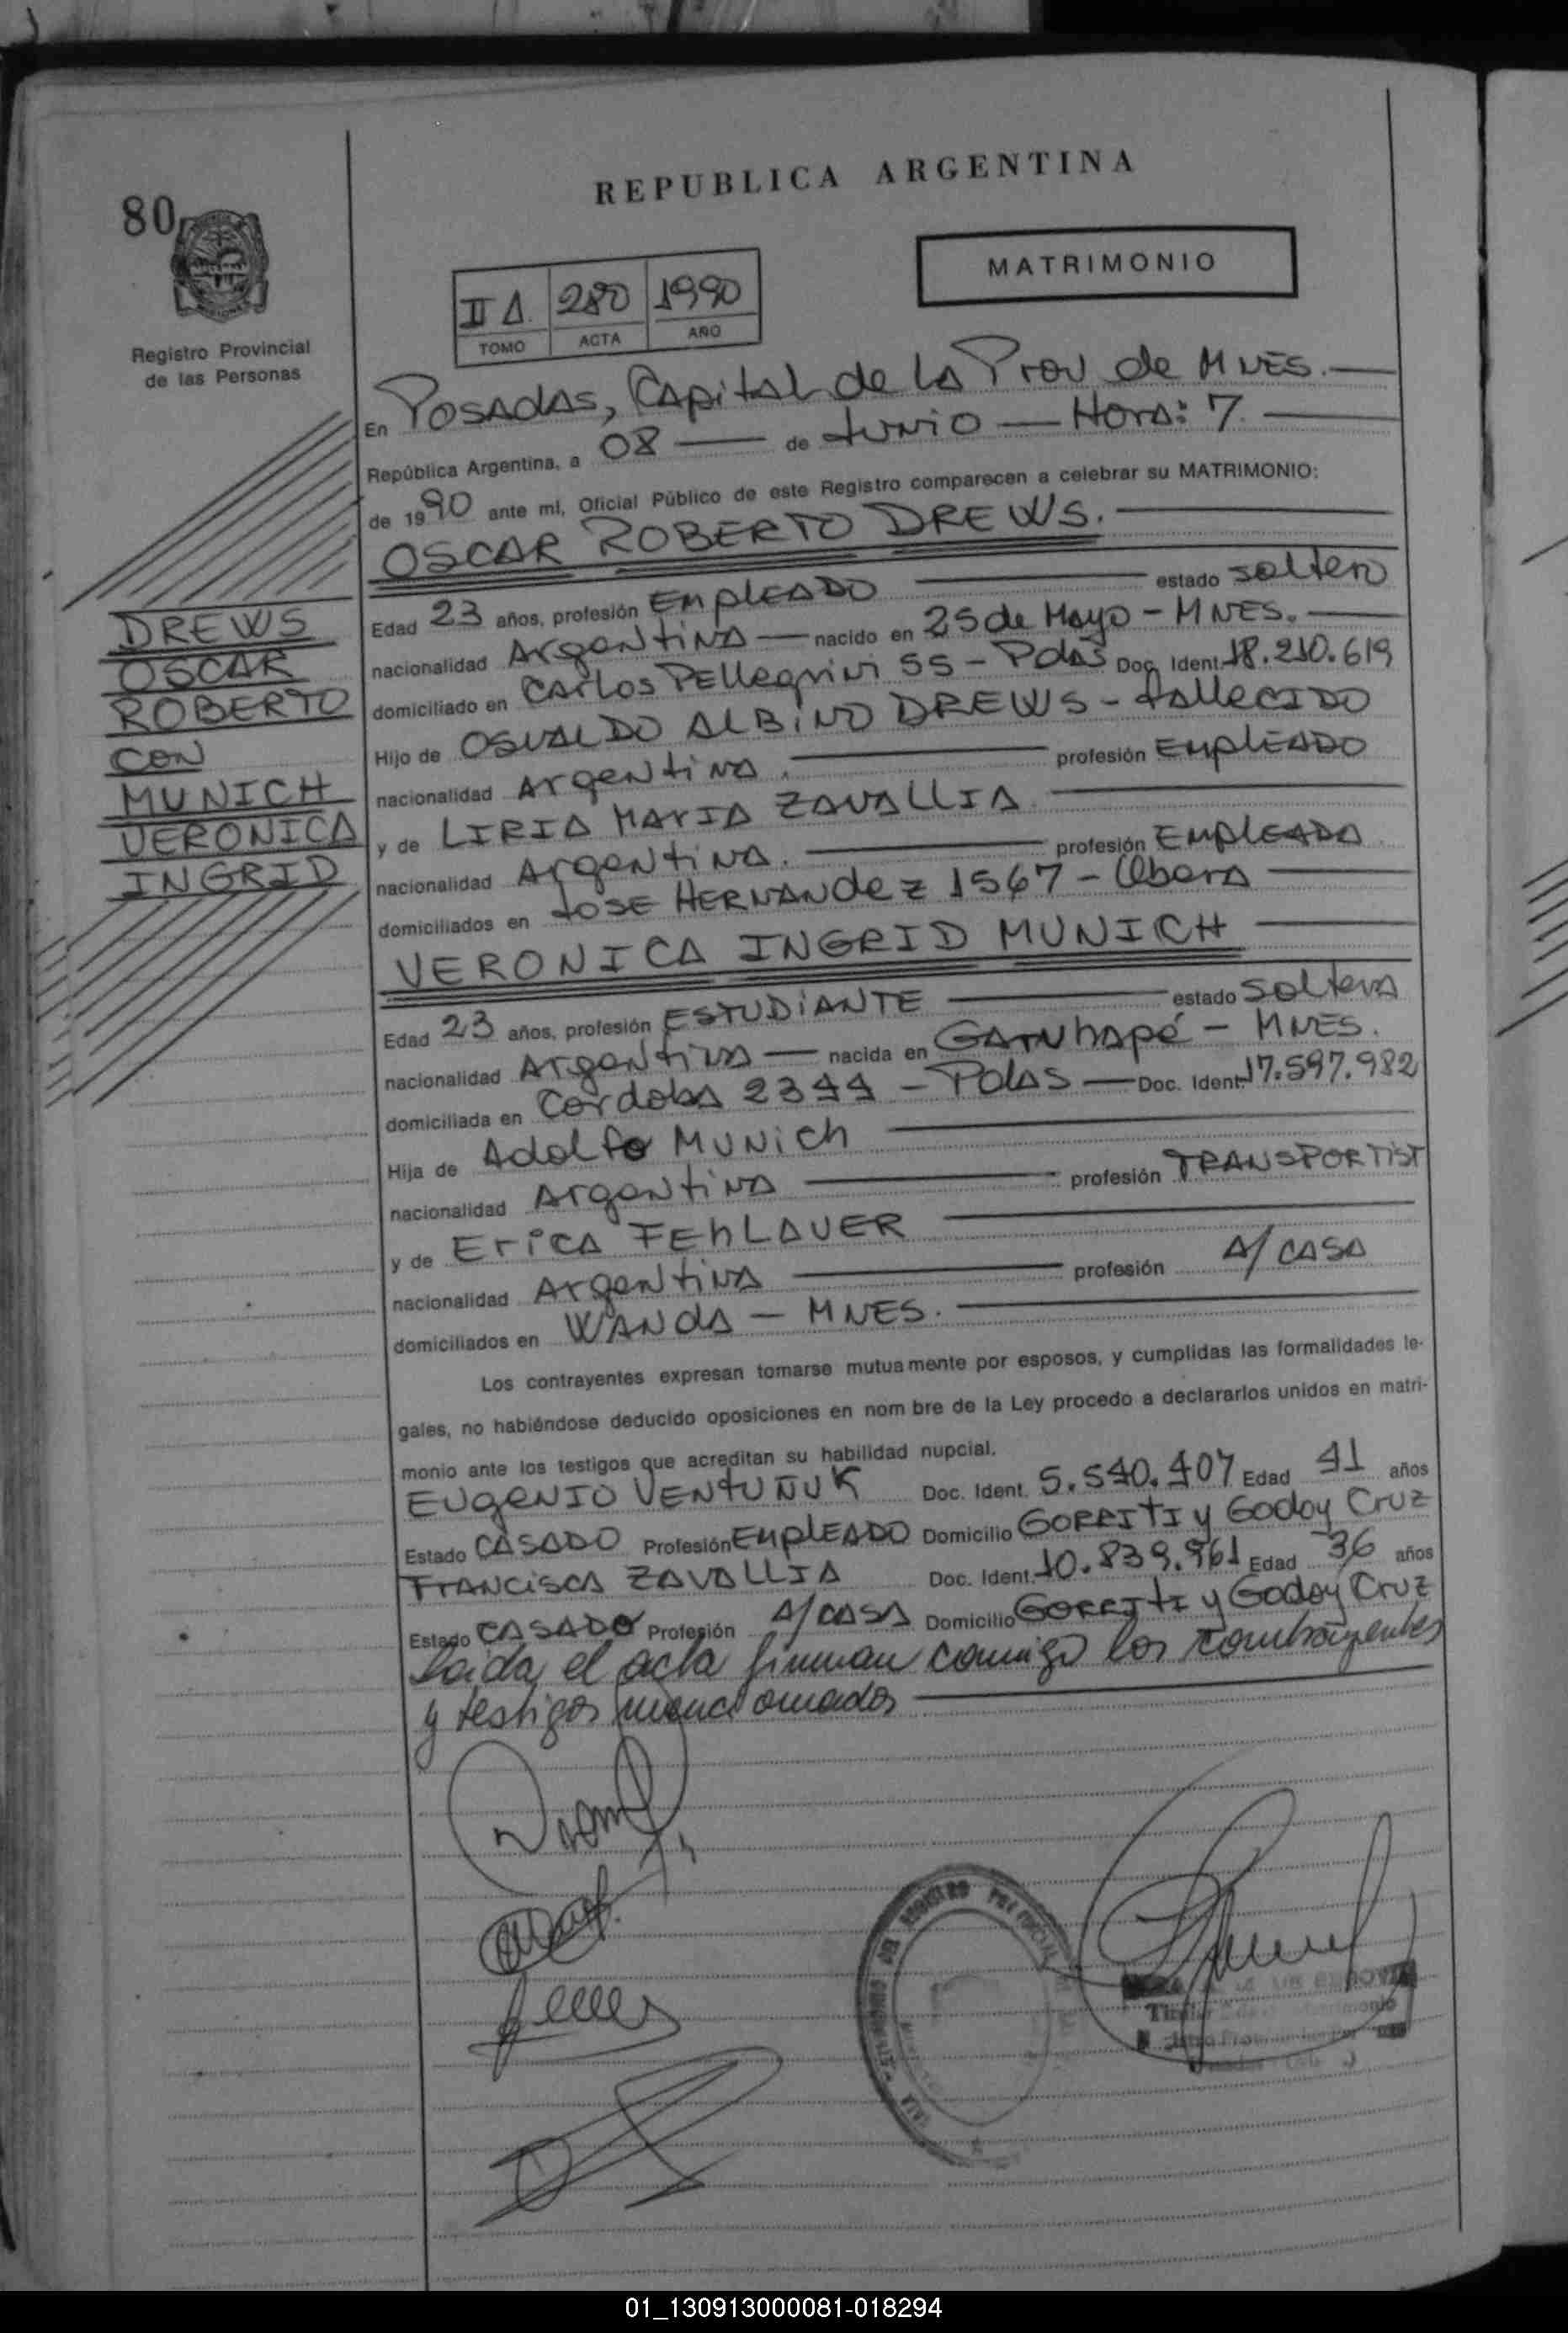 REPUBLICA ARGENTINA
80
MATRIMONIO
II A. 280 1990
TOMO ACTA AÑO
Registro Provincial
de las Personas
En Posadas, Capital de la Prov de MNES.
República Argentina, a 08 de Junio Hora: 7
de 1990 ante mí, Oficial Público de este Registro comparecen a celebrar su MATRIMONIO:
OSCAR ROBERTO DREWS.
Edad 23 años, profesión EMPLEADO estado soltero
nacionalidad Argentina nacido en 25 de Mayo - MNES.
domiciliado en Carlos Pellegrini 55 - Pdas Doc. Ident. 18.210.619
Hijo de OSVALDO ALBINO DREWS - fallecido
nacionalidad Argentina. profesión EMPLEADO
y de LIRIA MARIA ZAVALLIA
nacionalidad Argentina. profesión EMPLEADA
domiciliados en JOSE HERNANDEZ 1567 - Obera
VERONICA INGRID MUNICH
Edad 23 años, profesión ESTUDIANTE estado soltera
nacionalidad Argentina nacida en GARUhapé - MNES.
domiciliada en Cordoba 2344 - Pdas Doc. Ident. 17.597.982
Hija de Adolfo MUNICH
nacionalidad Argentina profesión TRANSPORTIST
y de Erica FEHLAUER
nacionalidad Argentina profesión A/ CASA
domiciliados en WANDA - MNES.
DREWS
OSCAR
ROBERTO
CON
MUNICH
VERONICA
INGRID
Los contrayentes expresan tomarse mutuamente por esposos, y cumplidas las formalidades le-
gales, no habiéndose deducido oposiciones en nom bre de la Ley procedo a declararlos unidos en matri-
monio ante los testigos que acreditan su habilidad nupcial.
EUGENIO VENTUÑUK Doc. Ident. 5.540.407 Edad 41 años
Estado CASADO Profesión EMPLEADO Domicilio GORRITI y Godoy Cruz
FRANCISCA ZAVALLIA Doc. Ident. 10.839.961 Edad 36 años
Estado CASADO Profesión A/ CASA Domicilio GORRITI y Godoy Cruz
Leida el acta firman conmigo los contrayentes
y testigos mencionados
01_130913000081-018294